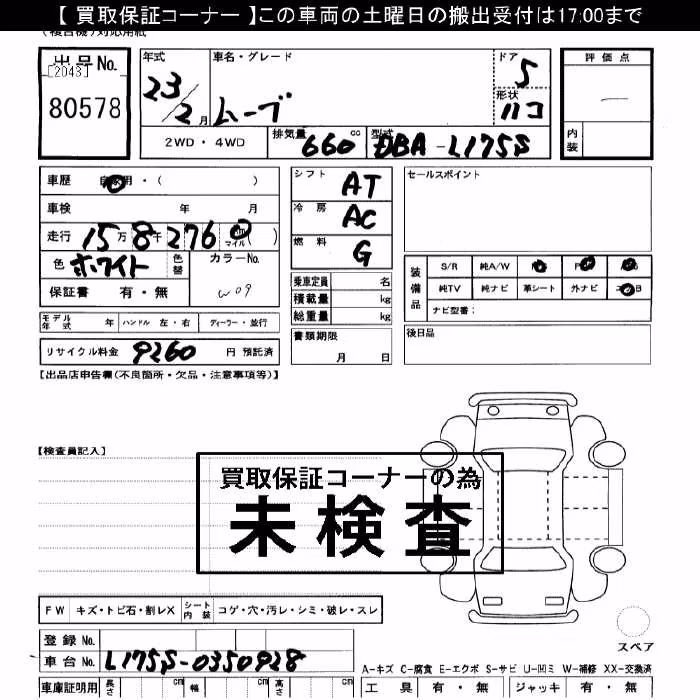 【 買取保証コーナー 】この車両の土曜日の搬出受付は17:00まで
出品No.
[2043]
80578
年式
23/2月
車名・グレード
ムーブ
ドア
5
形状
ハコ
評価点
内装
2WD・4WD
排気量 660 cc
型式 DBA-L175S
車歴 自家用・( )
車検 年 月
走行 15万8千276 km マイル ( )
色 ホワイト
色替
カラーNo.
W09
保証書 有・無
シフト AT
冷房 AC
燃料 G
セールスポイント
乗車定員 名
積載量 kg
総重量 kg
装備品
S/R 純A/W
純TV 純ナビ 革シート 外ナビ
ナビ型番:
モデル年式 年 ハンドル 左・右 ディーラー・並行
書類期限
月 日
後日品
リサイクル料金 9260 円 預託済
【出品店申告欄(不良箇所・欠品・注意事項等)】
【検査員記入】
買取保証コーナーの為
未検査
FW キズ・トビ石・割レX シート内装 コゲ・穴・汚レ・シミ・破レ・スレ
スペア
登録No.
車台No. L175S-0350928
A-キズ C-腐食 E-エクボ S-サビ U-凹ミ W-補修 XX-交換済
車庫証明用 長さ cm 幅 cm 高さ cm
工具 有・無 ジャッキ 有・無